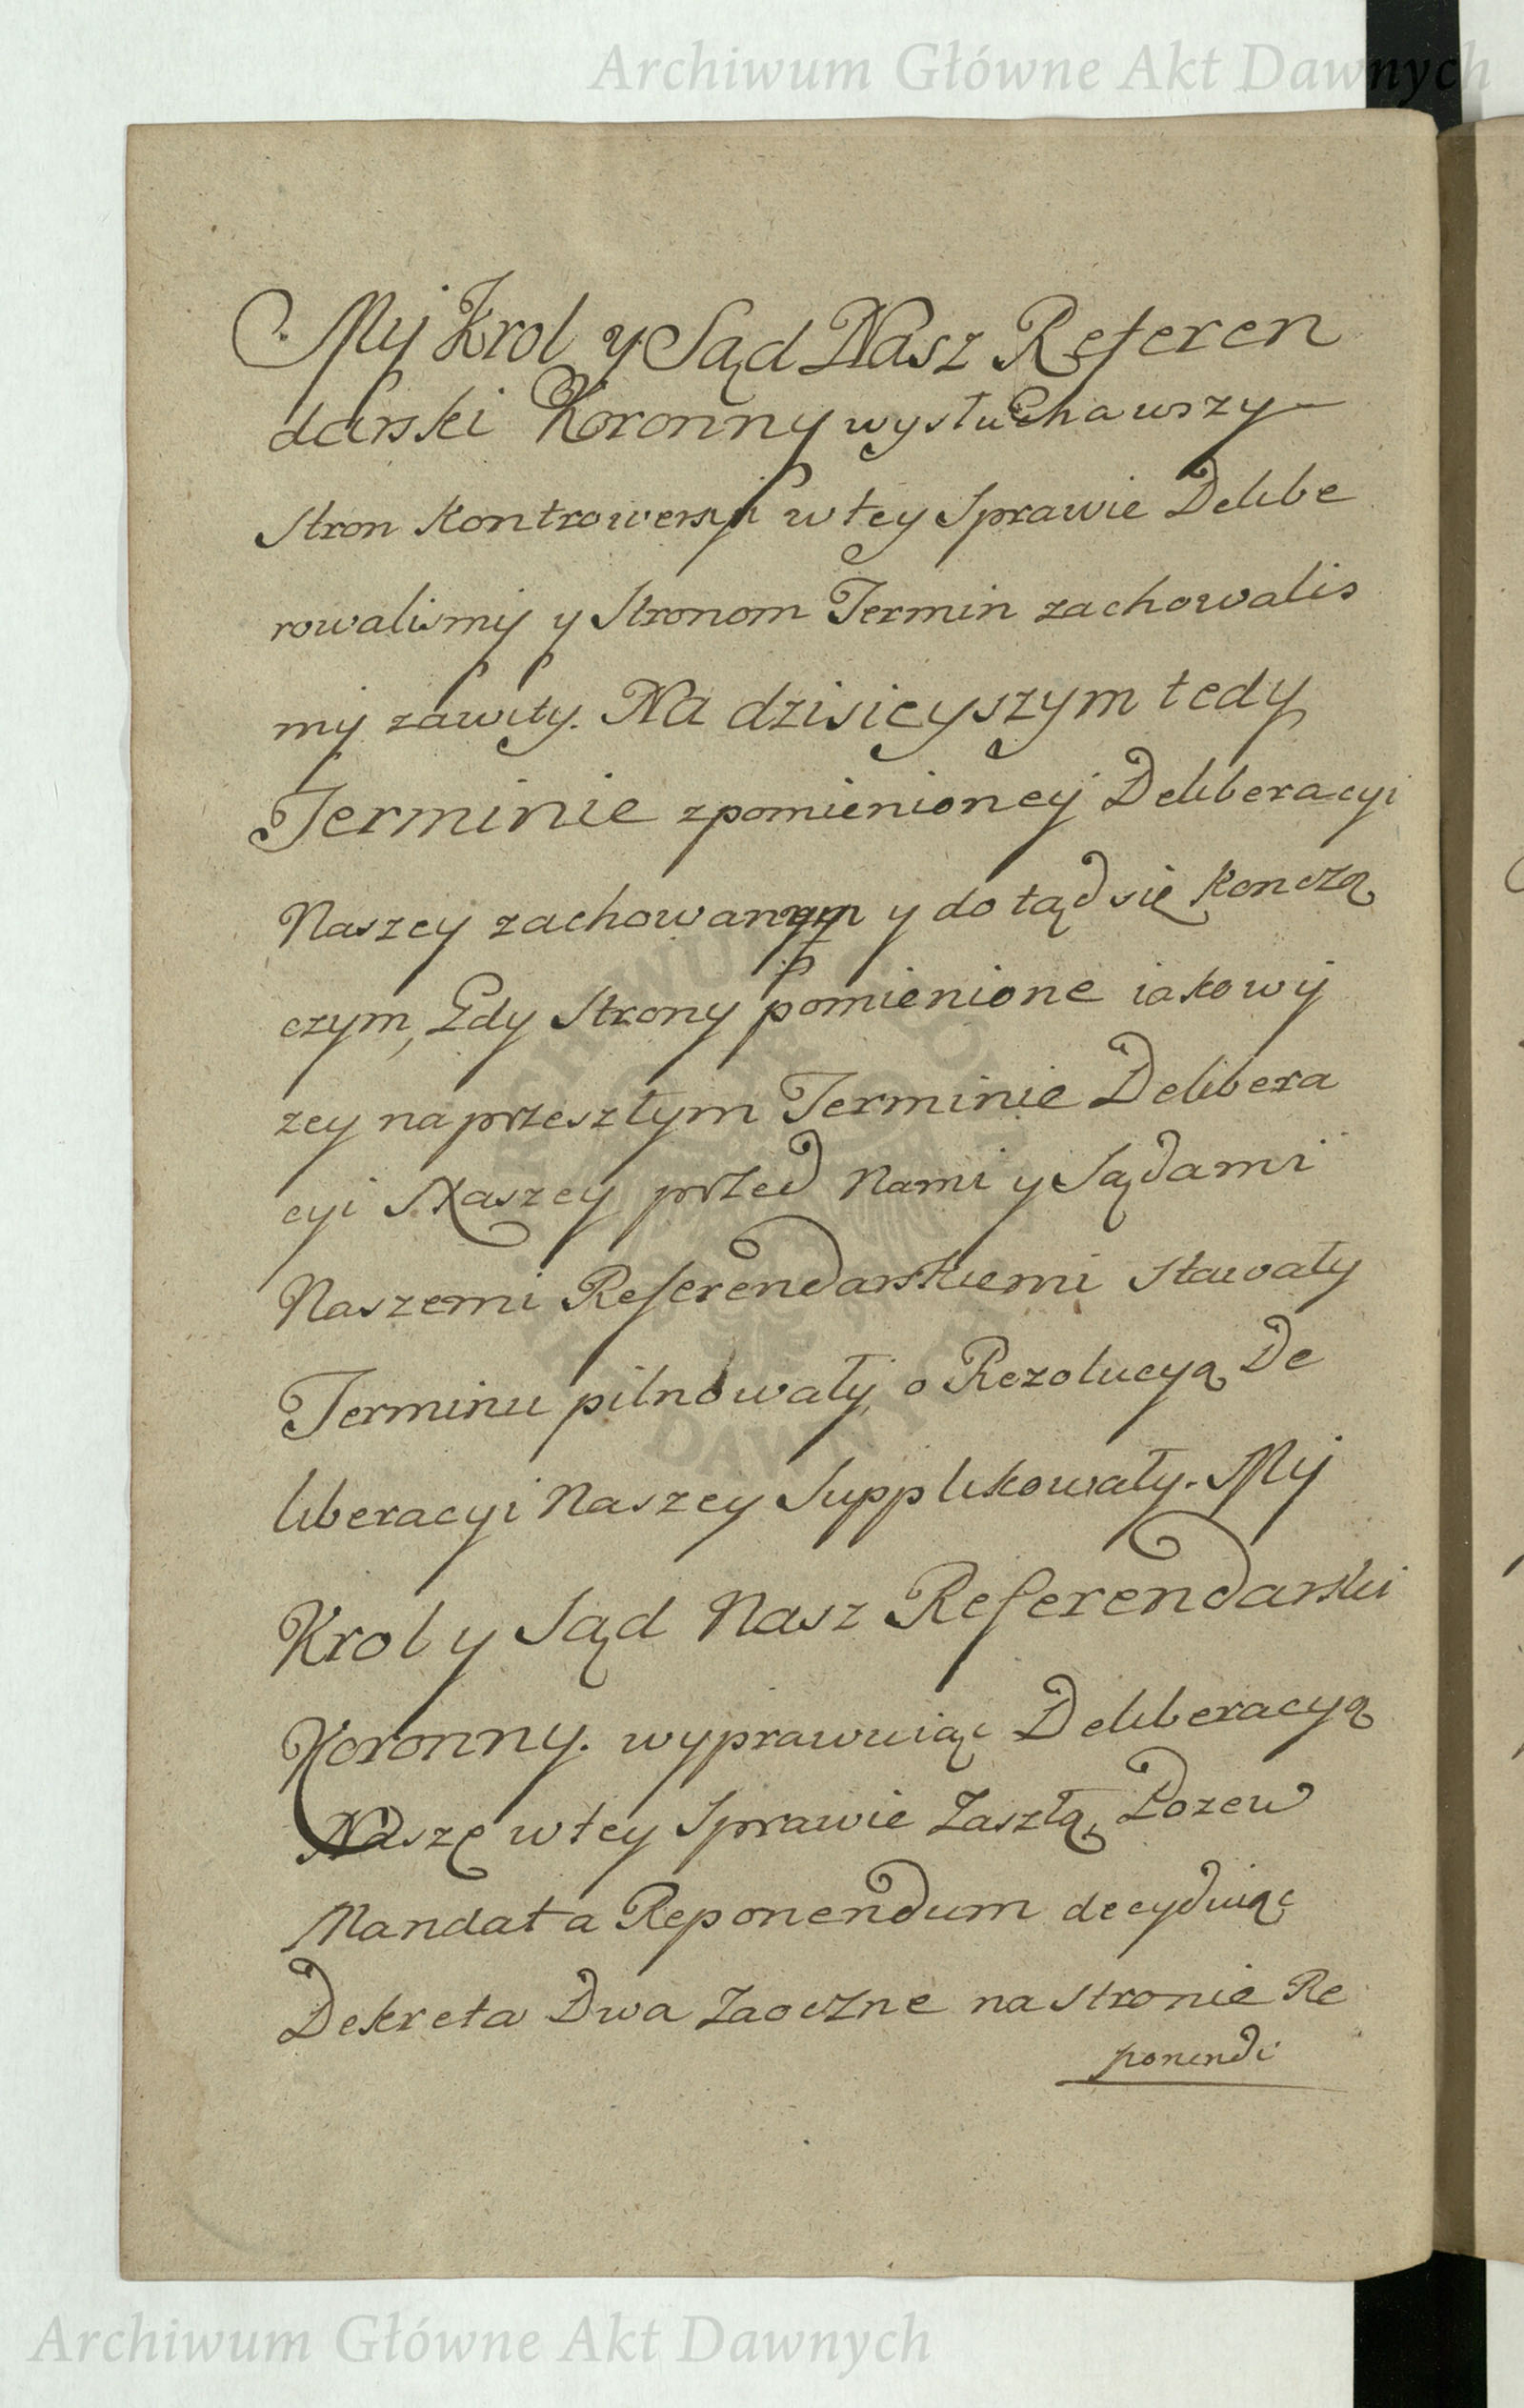 Archiwum Główne Akt Dawnych
My Krol y Sąd Nasz Referen
darski Koronny wysłuchawszy
Stron Kontrowersyi w tey Sprawie Delibe
rowalismy y Stronom Termin zachowalis
my zawity. Na dzisieyszym tedy
Terminie z pomienioney Deliberacyi
Naszey zachowanym y do tąd się kończą
czym, Gdy Strony pomienione iakowy
zey na przeszłym Terminie Delibera
cyi Naszey przed Nami y Sądami
Naszemi Referendarskiemi Stawały
Terminu pilnowały, o Rezolucyą De
liberacyi Naszey Supplikowały. My
Krol y Sąd Nasz Referendarski
Koronny. wyprawuiąc Deliberacyą
Naszę w tey Sprawie Zaszłą, Pozew
Mandat a Reponendum decyduiąc
Dekreta Dwa Zaoczne na stronie Re
ponendi
Archiwum Główne Akt Dawnych